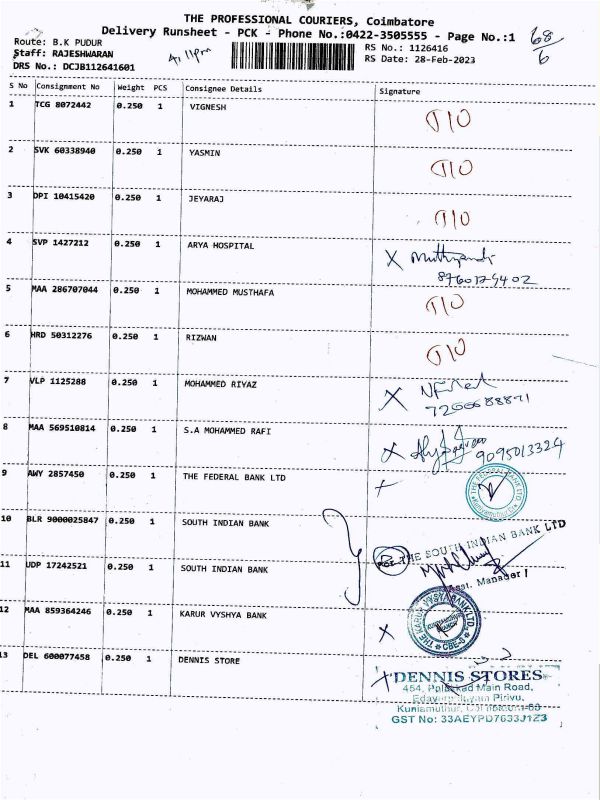 THE PROFESSIONAL COURIERS, Coimbatore
Delivery Runsheet - PCK - Phone No.:0422-3505555 - Page No.:1
68/6
Route: B.K PUDUR
Staff: RAJESHWARAN
DRS No.: DCJB112641601
4.11pm
RS No.: 1126416
RS Date: 28-Feb-2023
S No Consignment No Weight PCS Consignee Details Signature
1 TCG 8072442 0.250 1 VIGNESH
2 SVK 60338940 0.250 1 YASMIN
3 DPI 10415420 0.250 1 JEYARAJ
4 SVP 1427212 0.250 1 ARYA HOSPITAL
5 MAA 286707044 0.250 1 MOHAMMED MUSTHAFA
6 HRD 50312276 0.250 1 RIZWAN
7 VLP 1125288 0.250 1 MOHAMMED RIYAZ
8 MAA 569510814 0.250 1 S.A MOHAMMED RAFI 9095013324
9 AWY 2857450 0.250 1 THE FEDERAL BANK LTD
THE FEDERAL BANK LTD
10 BLR 9000025847 0.250 1 SOUTH INDIAN BANK
THE SOUTH INDIAN BANK LTD
11 UDP 17242521 0.250 1 SOUTH INDIAN BANK
Asst. Manager
12 MAA 859364246 0.250 1 KARUR VYSHYA BANK
THE KARUR VYSYA BANK LTD.
13 DEL 600077458 0.250 1 DENNIS STORE
DENNIS STORES
454, Palakkad Main Road,
Pirivu,
Kuniamuthur,
GST No: 33AEYPD7633J1Z3